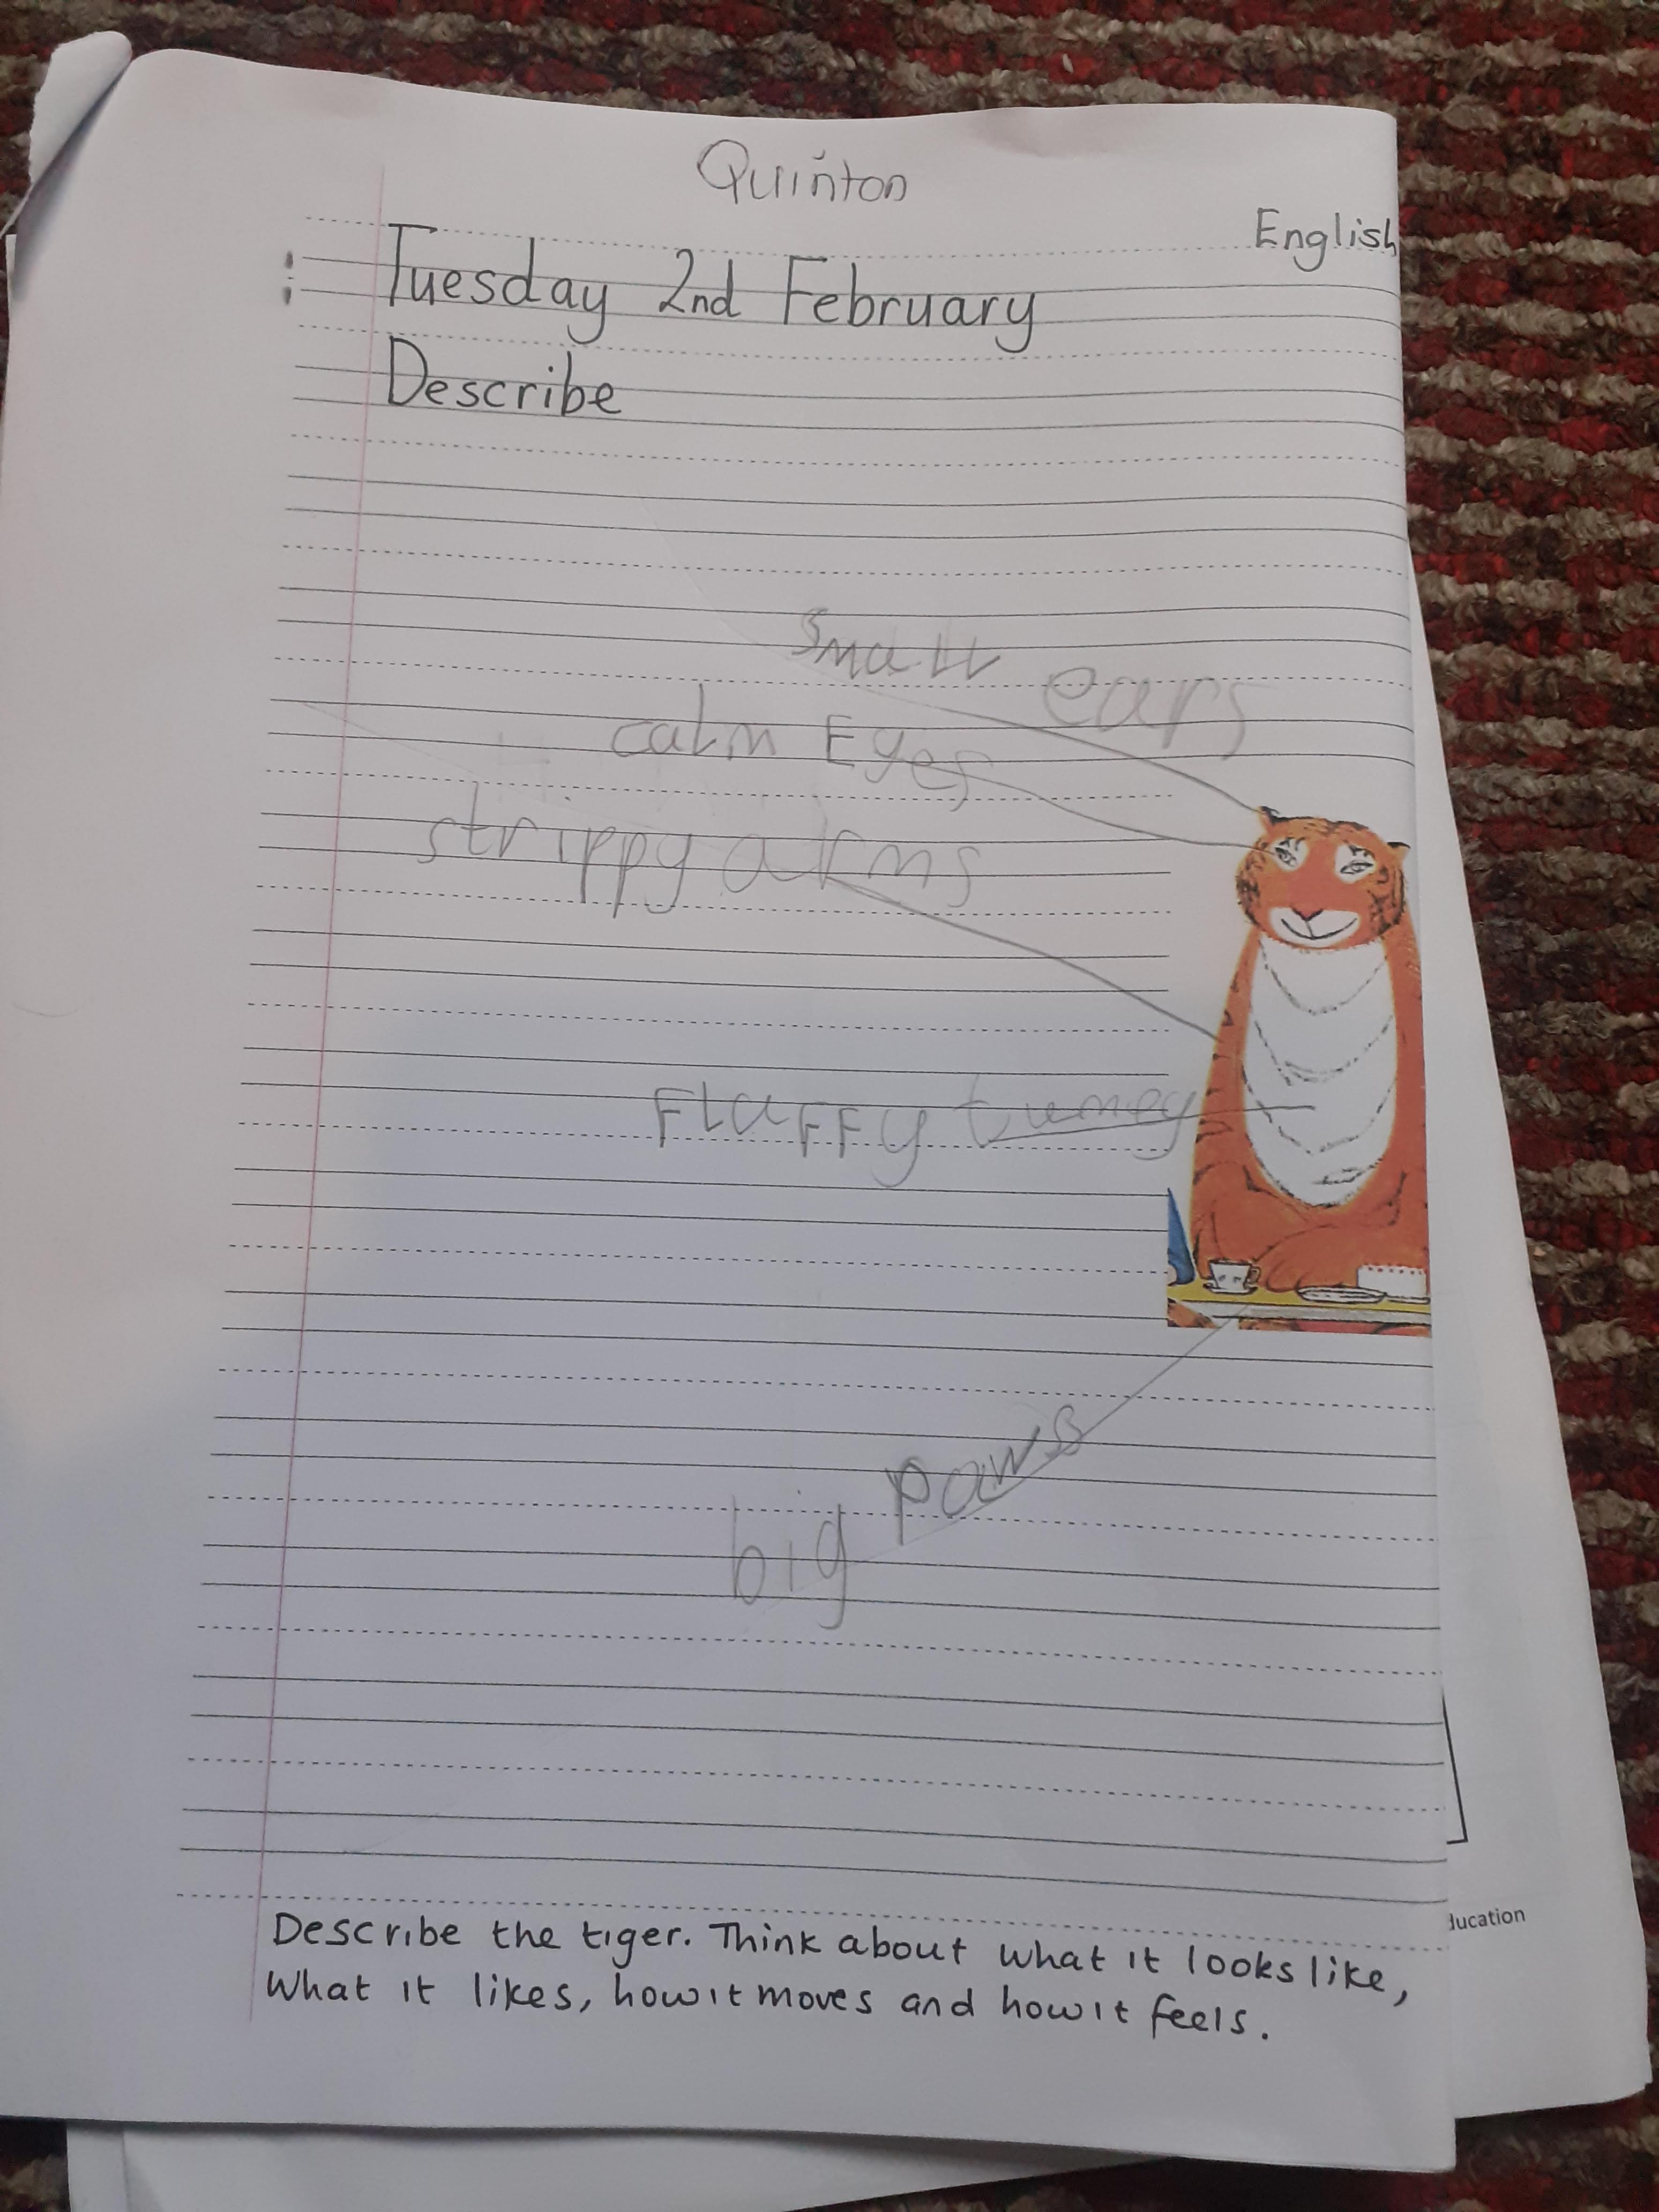 Quinton
English
Tuesday 2nd February
Describe
small ears
calm Eyes
strippy arms
FluFFy tumey
big paws
Describe the tiger. Think about what it looks like,
What it likes, how it moves and how it feels.
ducation